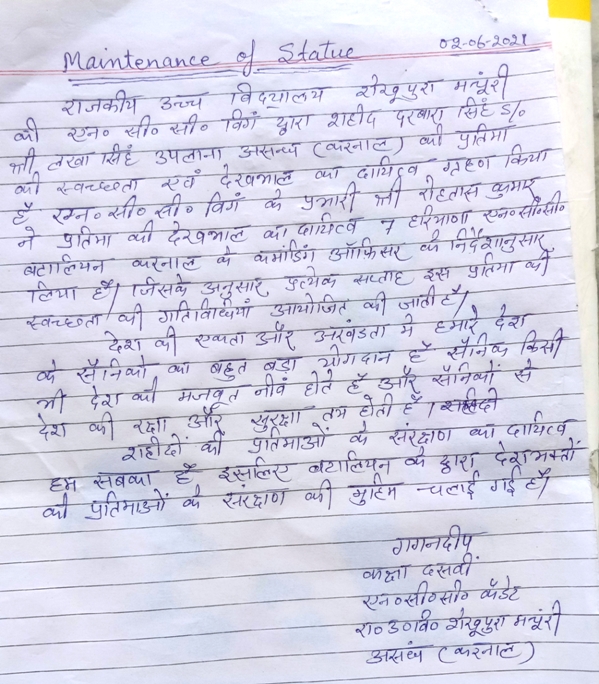 Maintenance of Statue 02-06-2021
राजकीय उच्च विद्यालय शेखूपुरा मन्चूरी
की एन० सी० सी० विंग द्वारा शहीद दरबारा सिंह S/०
श्री लखा सिंह उपलाना असन्ध (करनाल) की प्रतिमा
की स्वच्छता एवं देखभाल का दायित्व ग्रहण किया
है एन० सी० सी० विंग के प्रभारी श्री रोहतास कुमार
ने प्रतिमा की देखभाल का दायित्व 7 हरियाणा एन०सी०सी०
बटालियन करनाल के कमांडिंग ऑफिसर के निर्देशानुसार
लिया है। जिसके अनुसार प्रत्येक सप्ताह इस प्रतिमा की
स्वच्छता की गतिविधियां आयोजित की जाती है।
देश की एकता और अखंडता मे हमारे देश
के सैनिको का बहुत बड़ा योगदान है सैनिक किसी
भी देश की मजबूत नीवं होते है और सैनिकों से
देश की रक्षा और सुरक्षा तय होती है।
शहीदों की प्रतिमाओं के संरक्षण का दायित्व
हम सबका है इसलिए बटालियन के द्वारा देशभक्तों
की प्रतिमाओं के संरक्षण की मुहिम चलाई गई है।
गगनदीप
कक्षा दसवीं
एन०सी०सी० कैडेट
रा०उ०वि० शेखूपुरा मन्चूरी
असंध (करनाल)